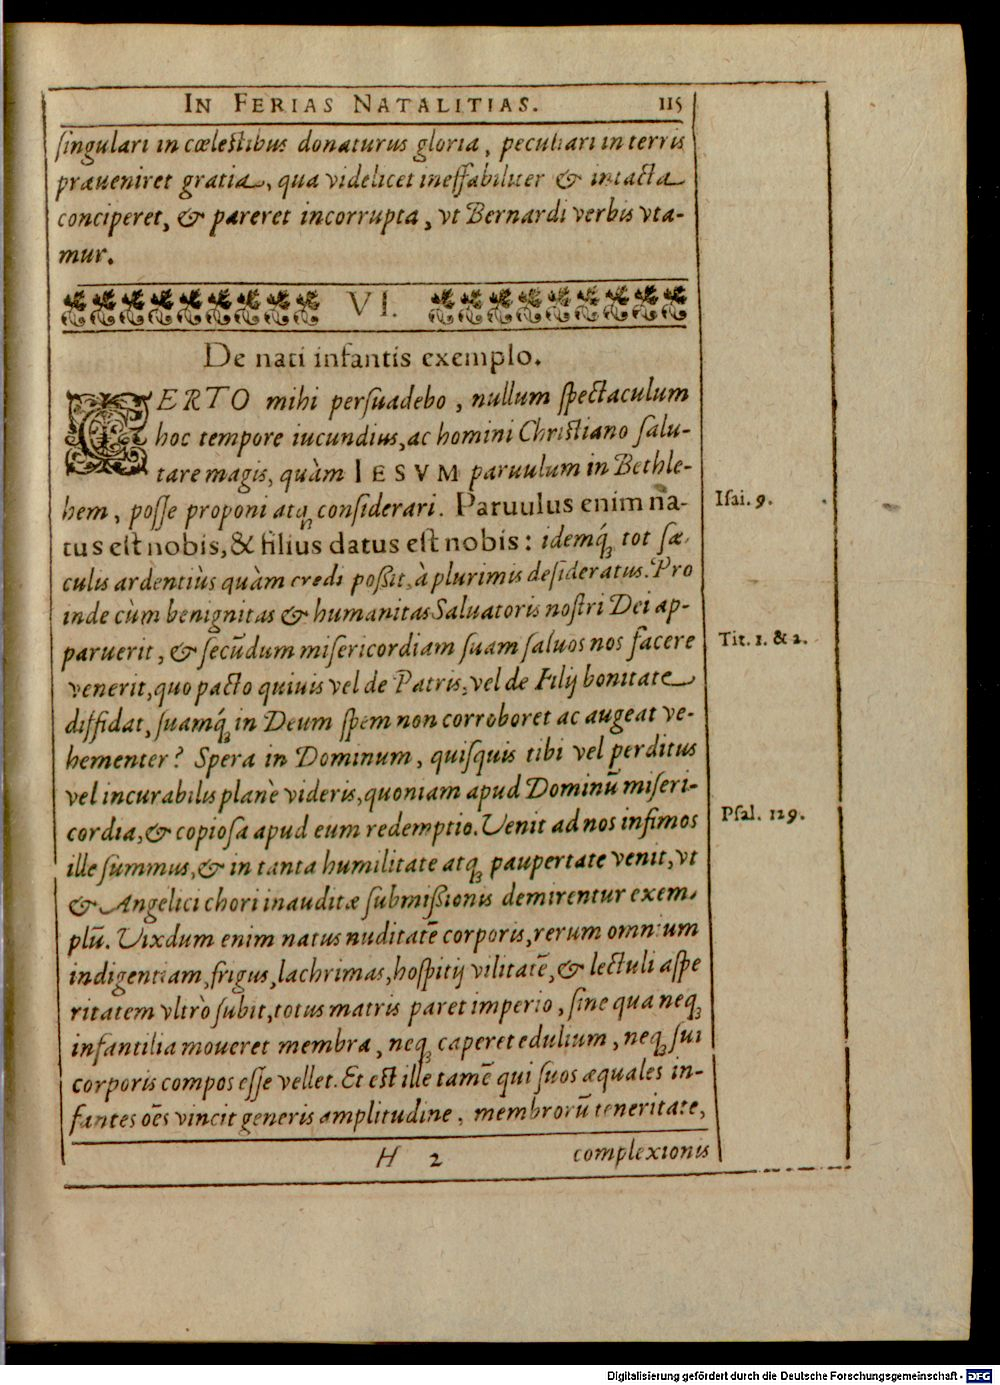 IN FERIAS NATALITIAS. 115
ſingulari in cœleſtibus donaturus gloria, peculiari in terris
præueniret gratia, qua videlicet ineffabiliter & intacta
conciperet, & pareret incorrupta, vt Bernardi verbis vta-
mur.
VI.
De nati infantis exemplo.
CERTO mihi perſuadebo, nullum ſpectaculum
hoc tempore iucundius, ac homini Chriſtiano ſalu-
tare magis, quàm IESVM paruulum in Bethle-
hem, poſſe proponi atq; conſiderari. Paruulus enim na-
Iſai. 9.
tus eſt nobis, & filius datus eſt nobis: idemq́; tot ſæ-
culis ardentiùs quàm credi poßit, à plurimis deſideratus. Pro
inde cùm benignitas & humanitas Saluatoris noſtri Dei ap-
paruerit, & ſecūdum miſericordiam ſuam ſaluos nos facere
Tit. 1. & 2.
venerit, quo pacto quiuis vel de Patris, vel de Filij bonitate
diffidat, ſuamq́; in Deum ſpem non corroboret ac augeat ve-
hementer? Spera in Dominum, quiſquis tibi vel perditus
vel incurabilis planè videris, quoniam apud Dominū miſeri-
cordia, & copioſa apud eum redemptio. Venit ad nos infimos
Pſal. 129.
ille ſummus, & in tanta humilitate atq; paupertate venit, vt
& Angelici chori inauditæ ſubmißionis demirentur exem-
plū. Vixdum enim natus nuditatē corporis, rerum omnium
indigentiam, frigus, lachrimas, hoſpitij vilitatē, & lectuli aſpe
ritatem vltrò ſubit, totus matris paret imperio, ſine qua neq;
infantilia moueret membra, neq; caperet edulium, neq; ſui
corporis compos eſſe vellet. Et eſt ille tamē qui ſuos æquales in-
fantes oēs vincit generis amplitudine, membrorū teneritate,
H 2 complexionis
Digitalisierung gefördert durch die Deutsche Forschungsgemeinschaft - DFG